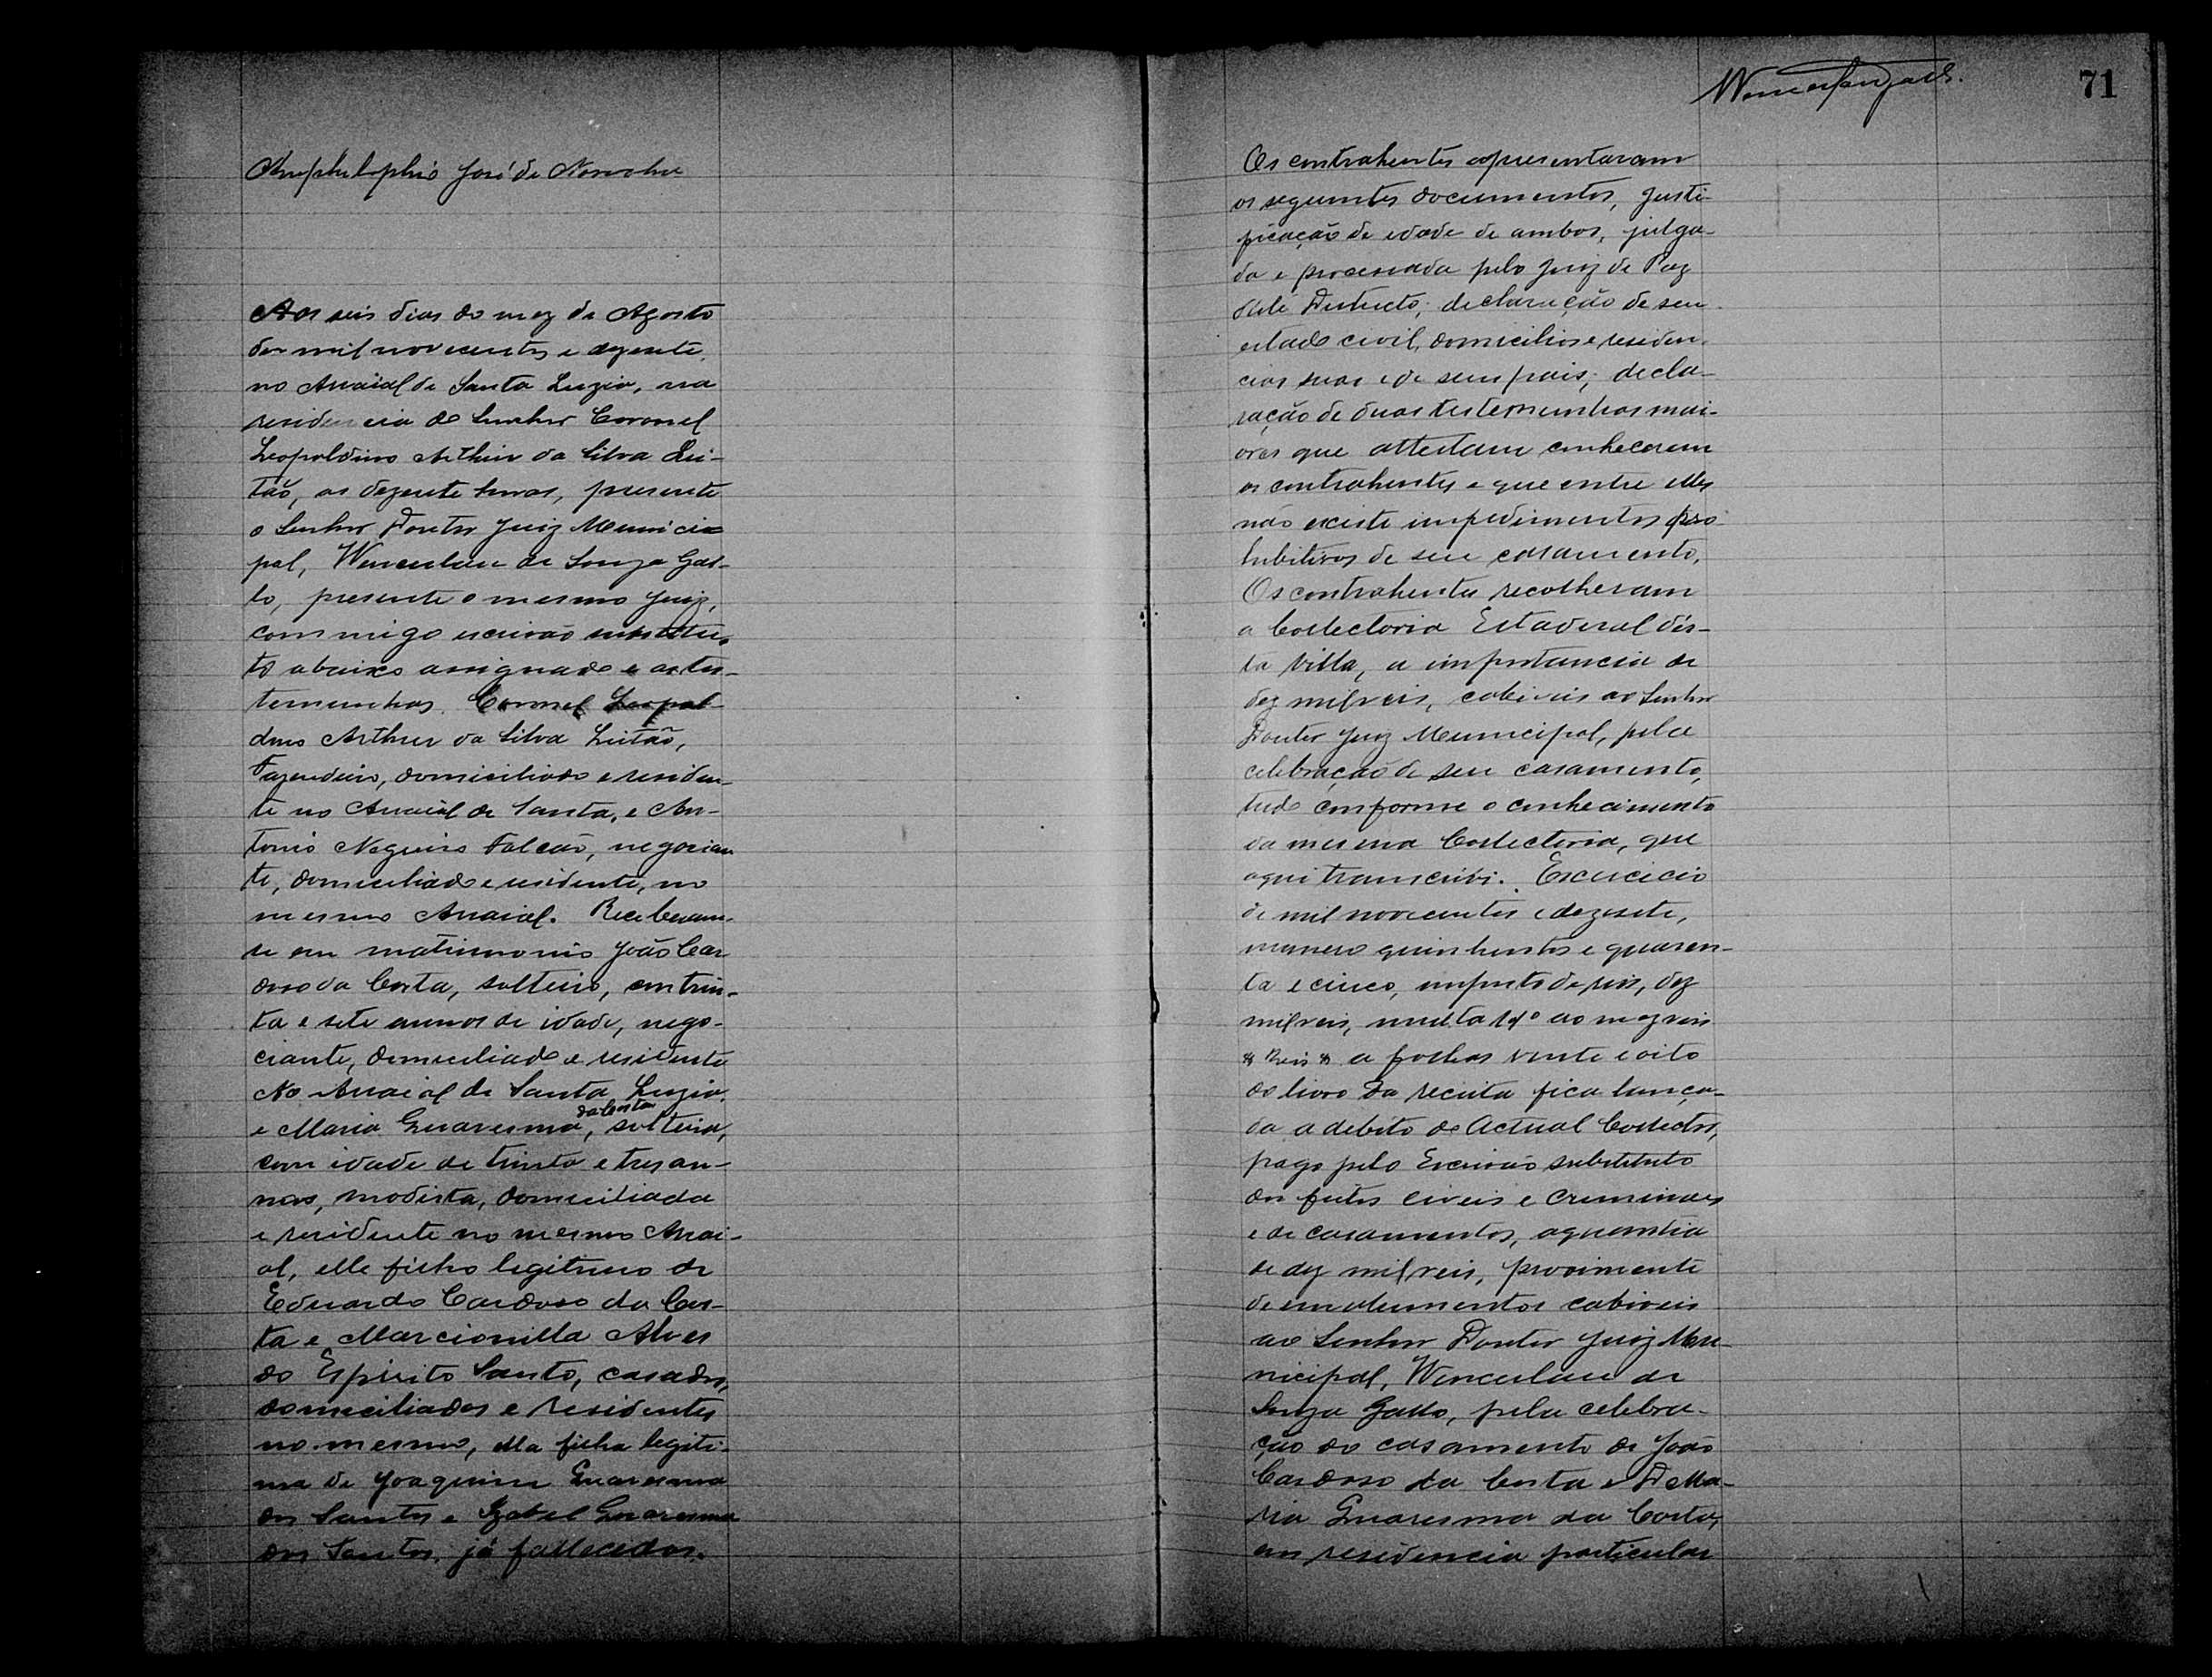 Amphilophio José de Noronha
Aos seis dias do mez de Agosto
de mil novecentos e dezesete,
no Arraial de Santa Luzia, na
residencia do Senhor Coronel
Leopoldino Arthur da Silva Lei-
tão, as dezesete horas, presente
o Senhor Doutor Juiz Munici
pal, Wenceslau de Souza Gal-
lo, presente o mesmo Juiz,
commigo escrivão substitu
to abaixo assignado e as tes-
temunhas. Coronel Leopol-
dino Arthur da Silva Leitão,
Fazendeiro, domiciliado e residen-
te no Arraial de Santa, e An-
tonio Falcão, negocian
te, domiciliado e residente, no
mesmo Arraial. Receberam-
se em matrimonio João Car
doso da Costa, solteiro, com trin-
ta e sete annos de idade, nego-
ciante, domiciliado e residente
No Arraial de Santa Luzia.
e Maria Quaresma da Costa, solteira,
com idade de trinta e tres an-
nos, modista, domiciliada
e residente no mesmo Arrai-
al, elle filho legitimo de
Eduardo Cardoso da Cos-
ta e Marcionilla Alves
do Espirito Santo, casados,
domiciliados e residentes
no mesmo, ella filha legiti-
ma de Joaquim Quaresma
dos Santos e Izabel Quaresma
dos Santos, já fallecidos.
71
Os contrahentes apresentaram
os seguintes documentos, Justi-
ficação de idade de ambos, julga-
da e processada pelo Juiz de Paz
deste Destricto; declaração de seu
estado civil, domicilios e residen-
cias suas e de seus pais; decla-
ração de duas testemunhas mai-
ores que attestam conhecerem
os contrahentes e que entre elles
não existe impedimentos pro-
hibitivos de seu casamento.
Os contrahentes recolheram
a Collectoria Estadual dés-
ta Villa, a importancia de
dez mil reis, cabiveis ao Senhor
Doutor Juiz Municipal, pela
celebração de seu casamento,
tudo conforme o conhecimento
da mesma Collectoria, que
aqui transcrivi. Excercicio
de mil novecentos e dezesete,
numero quinhentos e quaren-
ta e cinco, imposto de reis, dez
mil reis, multa ao mez reis
Reis a folhas vinte e oito
do livro da receita fica lança-
da a debito do Actual Collector,
pago pelo Escrivão substituto
dos feitos civeis e criminaes
e de casamentos, aquantia
de dez mil reis, provimente
de emolumentos cabiveis
ao Senhor Doutor Juiz Mu-
nicipal, Wenceslau de
Souza Gallo, pela celebra-
ção do casamento de João
Cardoso da Costa e D Ma-
ria Quaresma da Costa,
em residencia particular